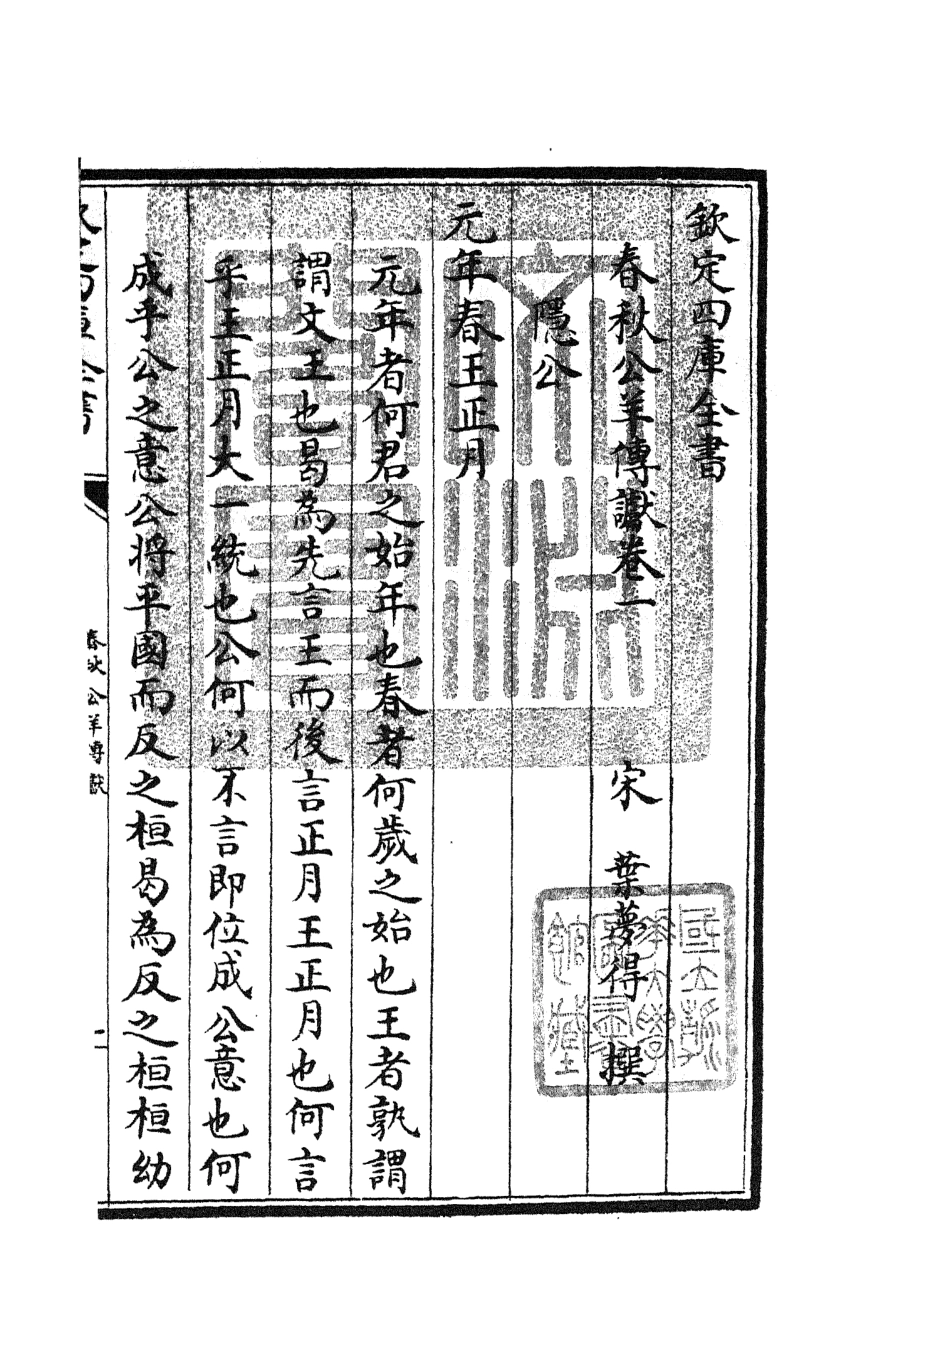 欽定四庫全書
春秋公羊傳讞卷一　宋　葉夢得　撰
隱公
元年春王正月
元年者何君之始年也春者何歲之始也王者孰謂
謂文王也曷為先言王而後言正月王正月也何言
乎王正月大一統也公何以不言即位成公意也何
成乎公之意公將平國而反之桓曷為反之桓桓幼
春秋公羊傳讞
一